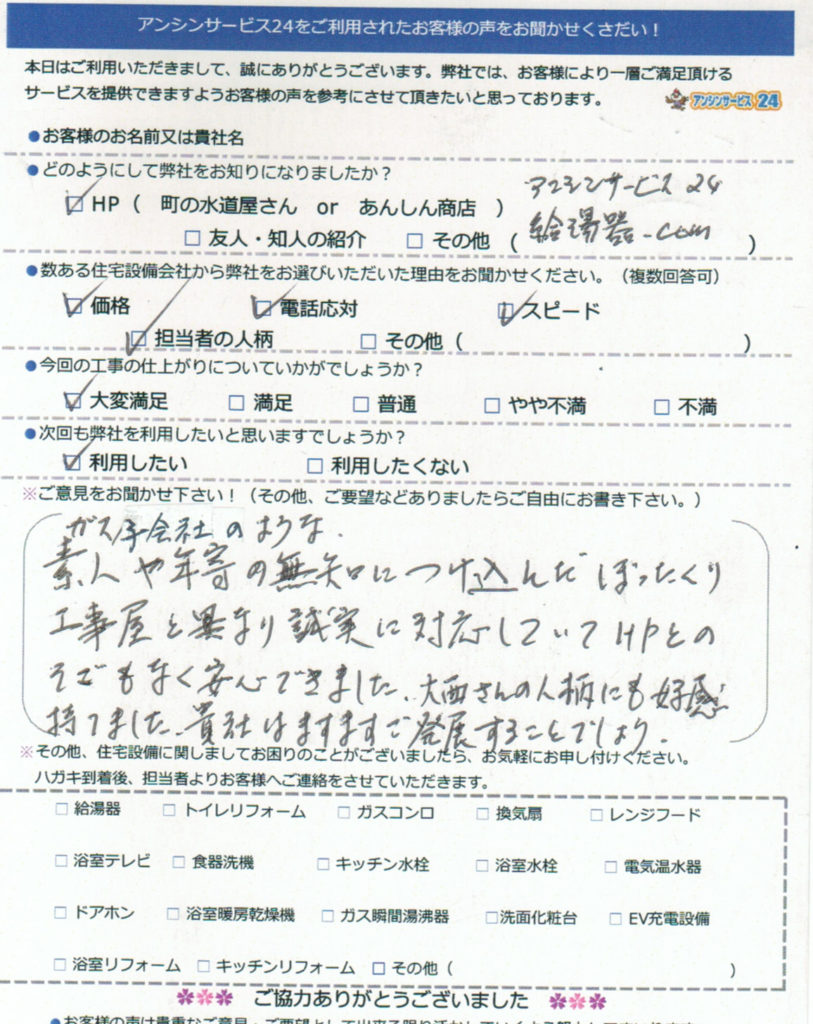 アンシンサービス24をご利用されたお客様の声をお聞かせくさだい！
本日はご利用いただきまして、誠にありがとうございます。弊社では、お客様により一層ご満足頂ける
サービスを提供できますようお客様の声を参考にさせて頂きたいと思っております。
アンシンサービス24
●お客様のお名前又は貴社名
●どのようにして弊社をお知りになりましたか？
アンシンサービス24
☑HP（ 町の水道屋さん or あんしん商店 ）
□友人・知人の紹介 □その他（給湯器.com）
●数ある住宅設備会社から弊社をお選びいただいた理由をお聞かせください。（複数回答可）
☑価格 ☑電話応対 ☑スピード
☑担当者の人柄 □その他（ ）
●今回の工事の仕上がりについていかがでしょうか？
☑大変満足 □満足 □普通 □やや不満 □不満
●次回も弊社を利用したいと思いますでしょうか？
☑利用したい □利用したくない
※ご意見をお聞かせ下さい！（その他、ご要望などありましたらご自由にお書き下さい。）
ガス子会社のような、
素人や年寄の無知につけ込んだぼったくり
工事屋と異なり誠実に対応していてHPとの
そごもなく安心できました、大西さんの人柄にも好感
持てました、貴社はますますご発展することでしょう。
※その他、住宅設備に関しましてお困りのことがございましたら、お気軽にお申し付けください。
ハガキ到着後、担当者よりお客様へご連絡をさせていただきます。
□給湯器 □トイレリフォーム □ガスコンロ □換気扇 □レンジフード
□浴室テレビ □食器洗機 □キッチン水栓 □浴室水栓 □電気温水器
□ドアホン □浴室暖房乾燥機 □ガス瞬間湯沸器 □洗面化粧台 □EV充電設備
□浴室リフォーム □キッチンリフォーム □その他（ ）
ご協力ありがとうございました